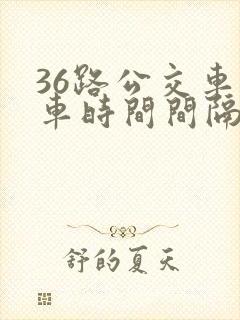 36路公交车
车時間間隔
舒的夏天